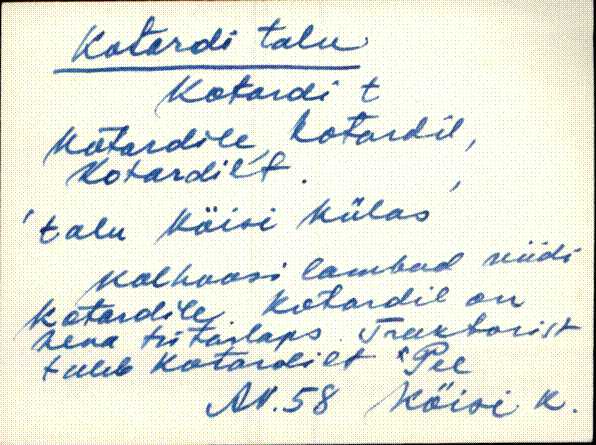 Kotardi talu
Kotardi t
Kotardile, kotardil,
Kotardilt.
'talu Köisi külas'
Kolhoosi lambad viidi
Kotardile. Kotardil on
hea tütarlaps. Traktorist
tuleb Kotardilt *Pee
AN.58 Köisi k.